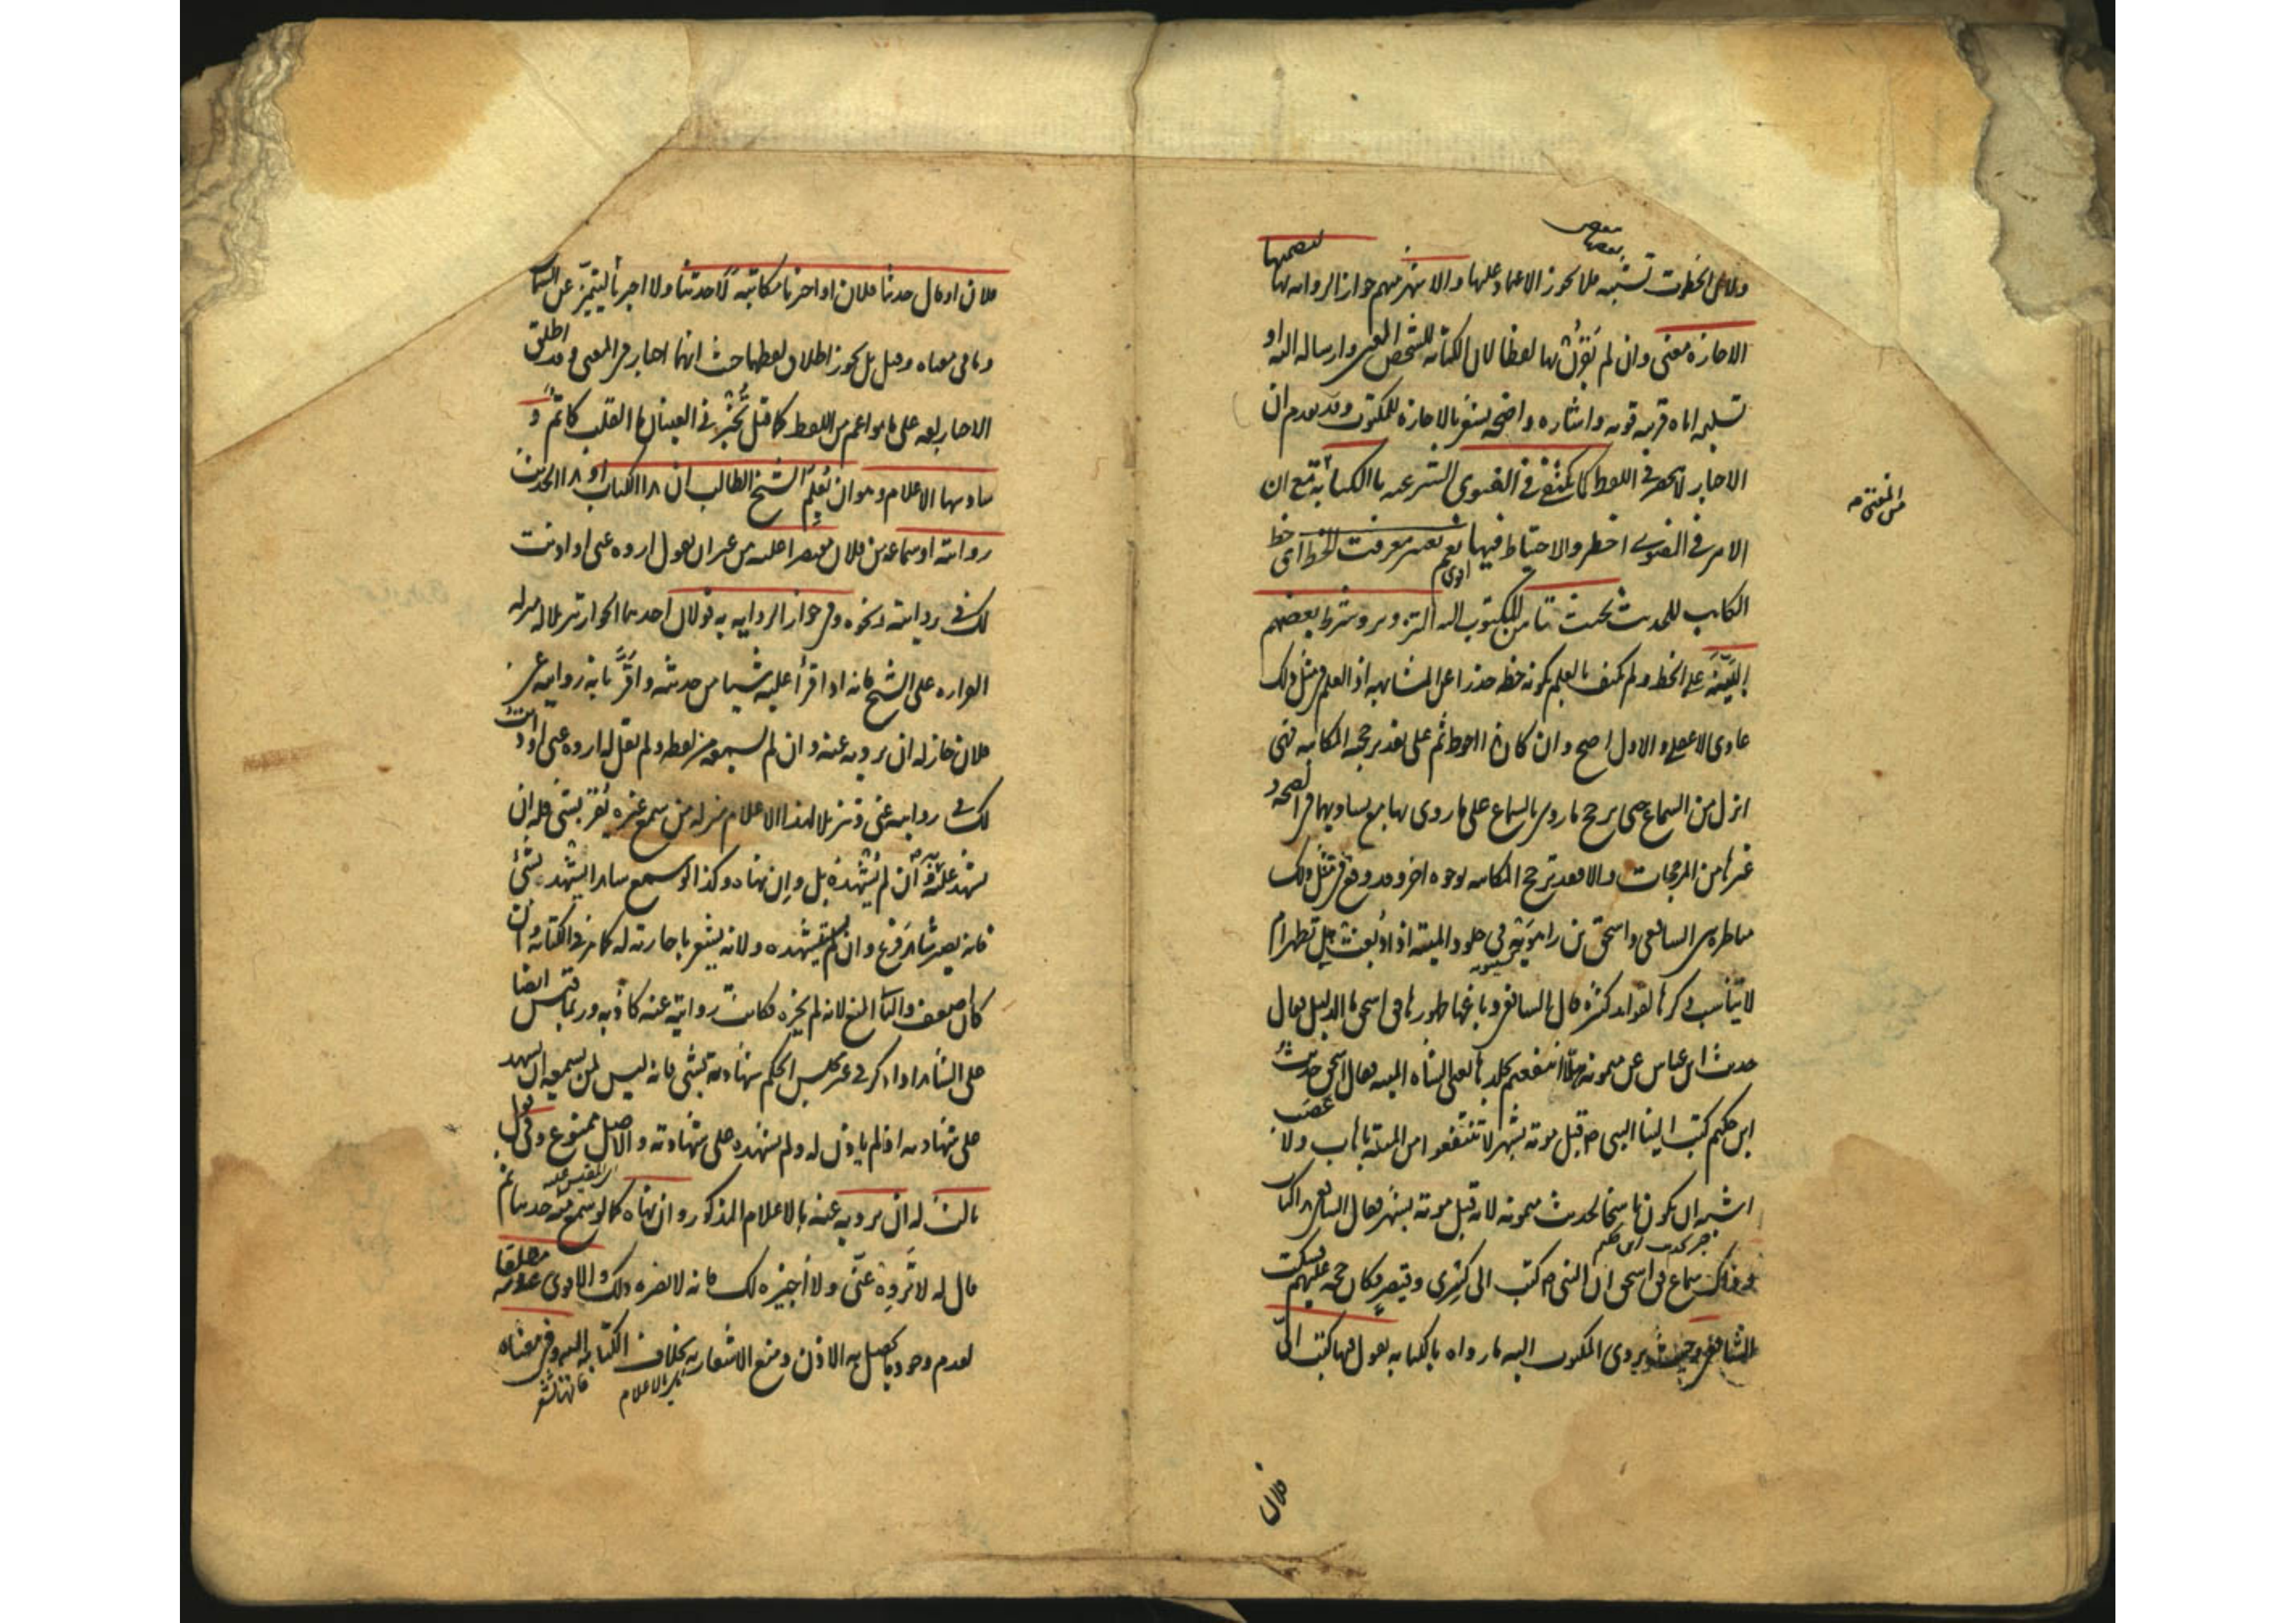 ولان الخطوط تشتبه فلا يجوز الاعتماد عليها والاشهر بينهم جواز الرواية بها لتضمنها
الاجازة معنى وان لم تقترن بها لفظا لان الكتابة للشخص المعين وارساله اليه او
تسليمه اياه قرينة قوية واشارة واضحة تشعر بالاجازة للمكتوب وقد تقدم ان
الاخبار لا ينحصر في اللفظ كما يكتفى في الفتوى الشرعية بالكتابة مع ان
الامر في الفتوى اخطر والاحتياط فيها اقوى نعم يعتبر معرفة الخط اى خط
الكاتب للحديث بحيث تامن للمكتوب اليه التزوير وشرط بعضهم
البينة على الخط ولم يكتف بالعلم بكونه خطه حذرا عن المشابهة اذ العلم في مثل ذلك
عادى لا عقلى والاول اصح وان كان هذا احوط ثم على تقدير حجية المكاتبة فهى
انزل من السماع حتى يرجح ما روى بالسماع على ما روى بها مع تساويهما في الصحة و
غيرها من المرجحات والا فقد ترجح المكاتبة بوجوه اخر وقد وقع في مثل ذلك
مناظرة بين الشافعى واسحق بن راهويه في جلود الميتة اذا دبغت هل تطهر ام
لا يناسب ذكرها لفوائد كثيرة قال الشافعى دباغها طهورها فى اسحق ما الدليل فقال
حديث ابن عباس عن ميمونة هلا انتفعتم بجلدها يعنى الشاة الميتة فقال اسحق حديث
ابن حكيم كتب الينا النبى ص قبل موته بشهر لا تنتفعوا من الميتة باهاب ولا عصب
اشبه ان يكون ناسخا لحديث ميمونة لانه قبل موته بشهر فقال الشافعى هذا كتاب
وذاك سماع فى اسحق ان النبى ص كتب الى كسرى وقيصر وكان حجة عليهم فسكت
الشافعى وحيث يروى المكتوب اليه ما رواه بالكتابة يقول فيها كتب الىّ
من المفتى صح
فلان
فلان او قال حدثنا فلان او اخبرنا مكاتبة لا حدثنا ولا اخبرنا ليتميز عن السماع
وما فى معناه وقيل بل يجوز اطلاق لفظهما حيث انهما اخبار في المعنى وقد اطلق
الاخبار لغة على ما هو اعم من اللفظ كما قيل تخبرنى العينان ما القلب كاتم و
سادسها الاعلام وهو ان يُعلِم الشيخ الطالب ان هذا الكتاب او هذا الحديث
روايته او سماعه من فلان مقتصرا عليه من غير ان يقول اروه عنى او اذنت
لك فى روايته ونحوه وفى جواز الرواية به قولان احدهما الجواز تنزيلا له منزلة
القراءة على الشيخ فانه اذا قرأ عليه شيئا من حديثه واقرّ بانه روايته عن
فلان جاز له ان يرويه عنه وان لم يسمعه من لفظه ولم يقل له اروه عنى او اذنت
لك فى روايته عنى وتنزيلا لهذا الاعلام منزلة من سمع غيره يقر بشئ فله ان
يشهد عليه وان لم يُشهده بل وان نهاه وكذا لو سمع شاهدا يشهد بشئ
فانه يصير شاهد فرع وان لم يستشهده ولانه يشعر باجازته له كما مر فى الكتابة وان
كان اضعف والثانى المنع لانه لم يجزه فكانت روايته عنه كاذبة وربما قيس ايضا
على الشاهد اذا ذكر فى غير مجلس الحكم شهادته بشئ فانه ليس لمن سمعه ان يشهد
على شهادته اذا لم ياذن له ولم يشهده على شهادته والاصل ممنوع وفى قول
ثالث له ان يرويه عنه بالاعلام المذكور وان نهاه كما لو سمع منه حديثا ثم
قال له لا تَروِهِ عنّى ولا اجيزه لك فانه لا يضره ذلك والاقوى عدمه مطلقا
لعدم وجود ما يحصل به الاذن ومنع الاشعار به بخلاف الكتابة اليه وفى معناه